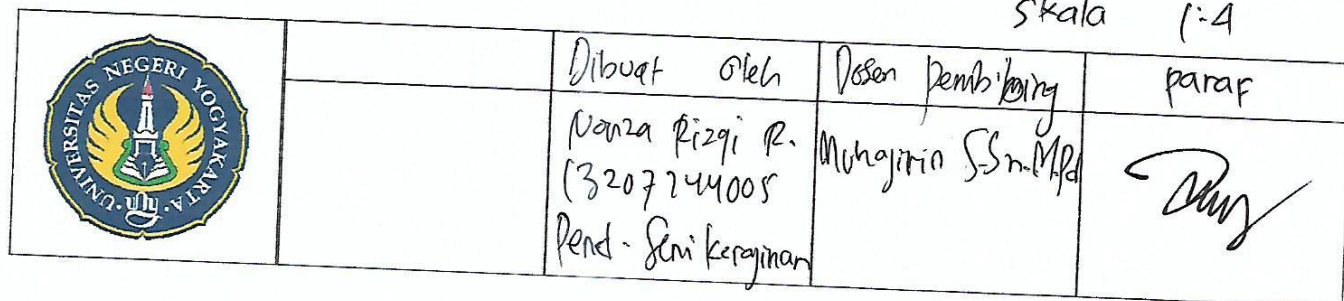 Skala 1:4
UNIVERSITAS NEGERI YOGYAKARTA
Dibuat oleh
Dosen pembibing
paraf
Nonza Rizqi R.
13207244005
Pend. Seni kerajinan
Muhajirin S.Sn.M.Pd